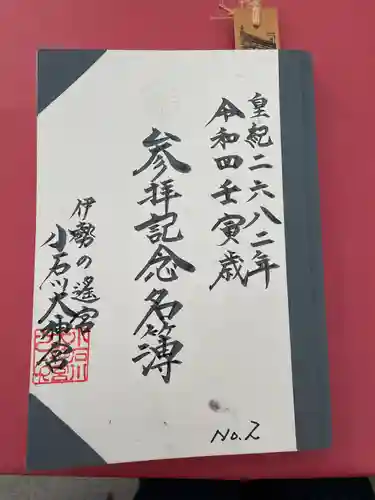 皇紀二六八二年
令和四壬寅歳
参拝記念名簿
伊勢の遥宮
小石川大神宮
No.2